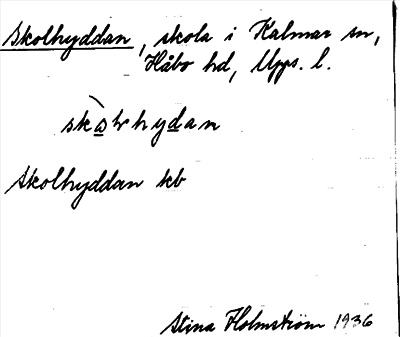 Skolhyddan, skola i Kalmar sn,
Håbo hd, Upps. l.
Skolhyddan kb
Stina Holmström 1936